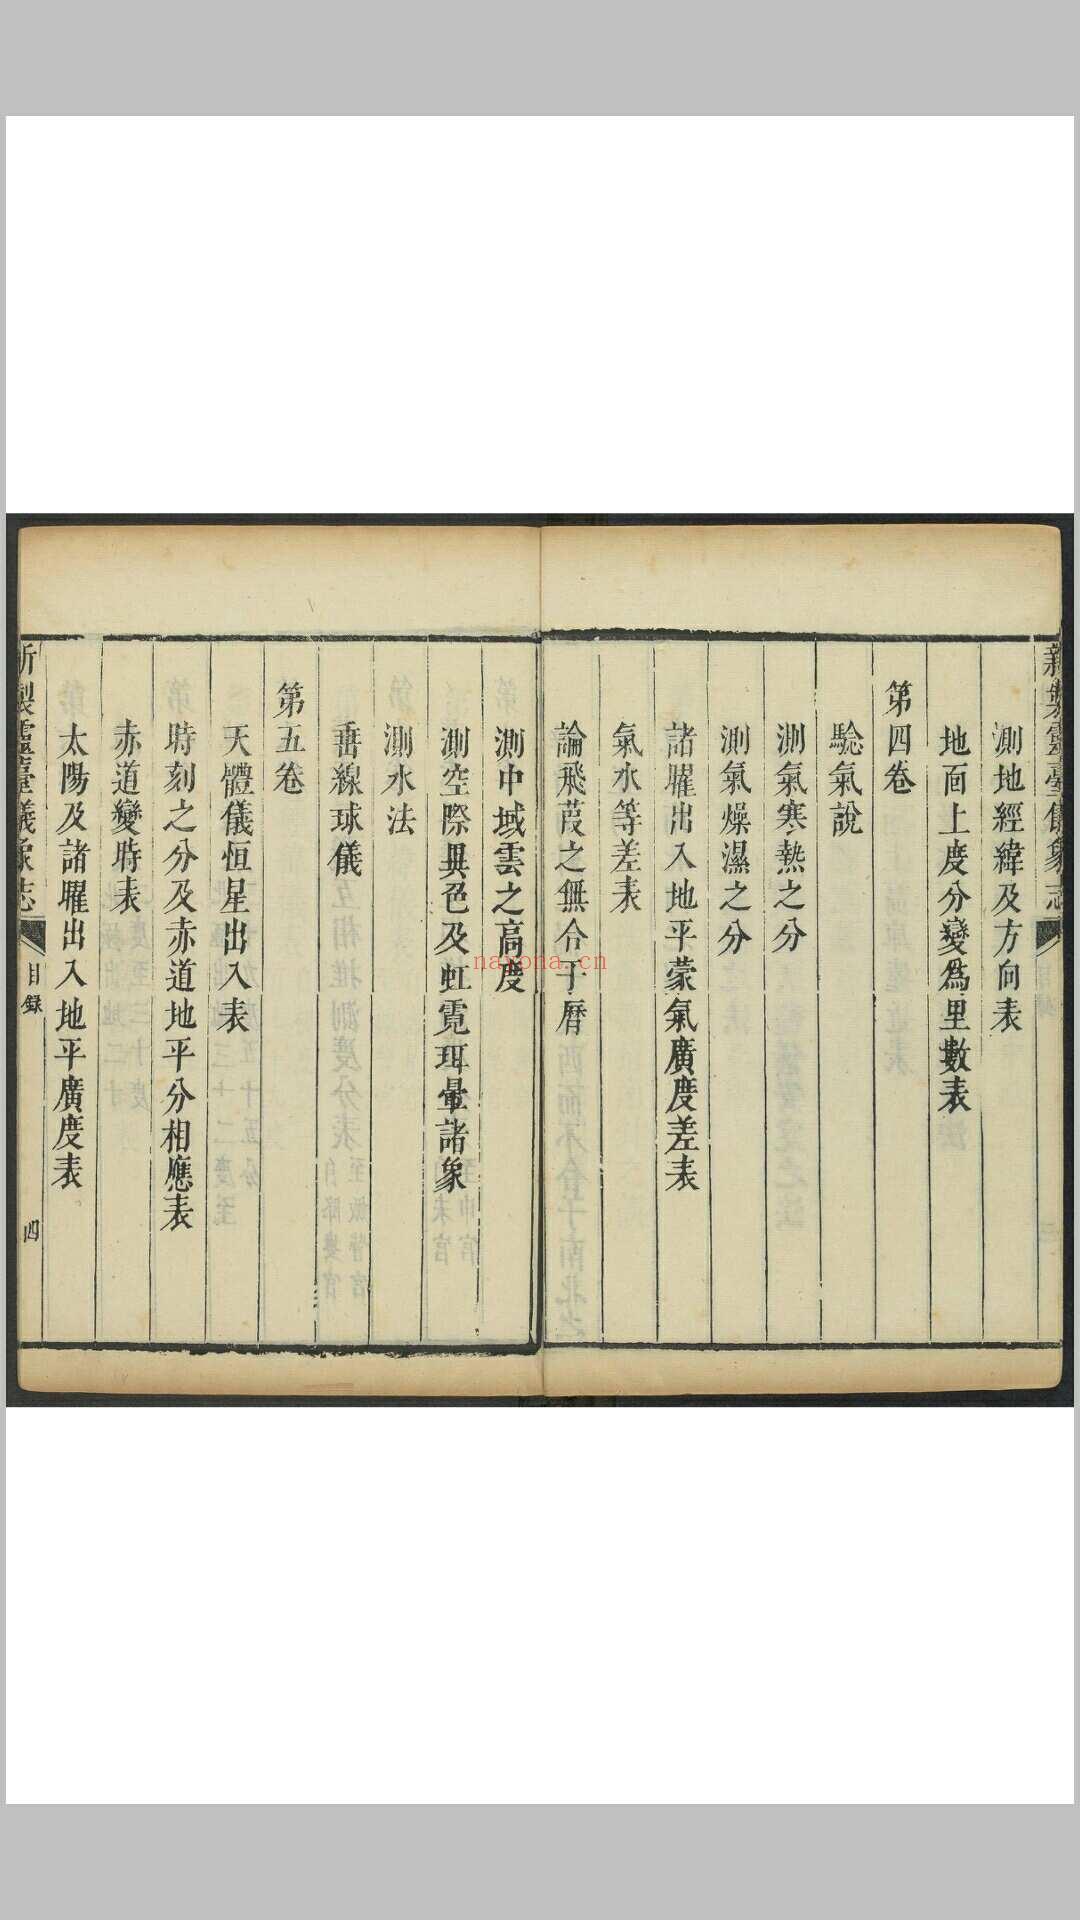 新製靈臺儀象志
測地經緯及方向表
地面上度分變爲里數表
第四卷
騐氣說
測氣寒熱之分
測氣燥濕之分
諸曜出入地平蒙氣廣度差表
氣水等差表
論飛葭之無合于曆
測中域雲之高度
測空際異色及虹霓珥暈諸象
測水法
垂線球儀
第五卷
天體儀恒星出入表
時刻之分及赤道地平分相應表
赤道變時表
太陽及諸曜出入地平廣度表
新製靈臺儀象志 目錄 四
nayona.cn